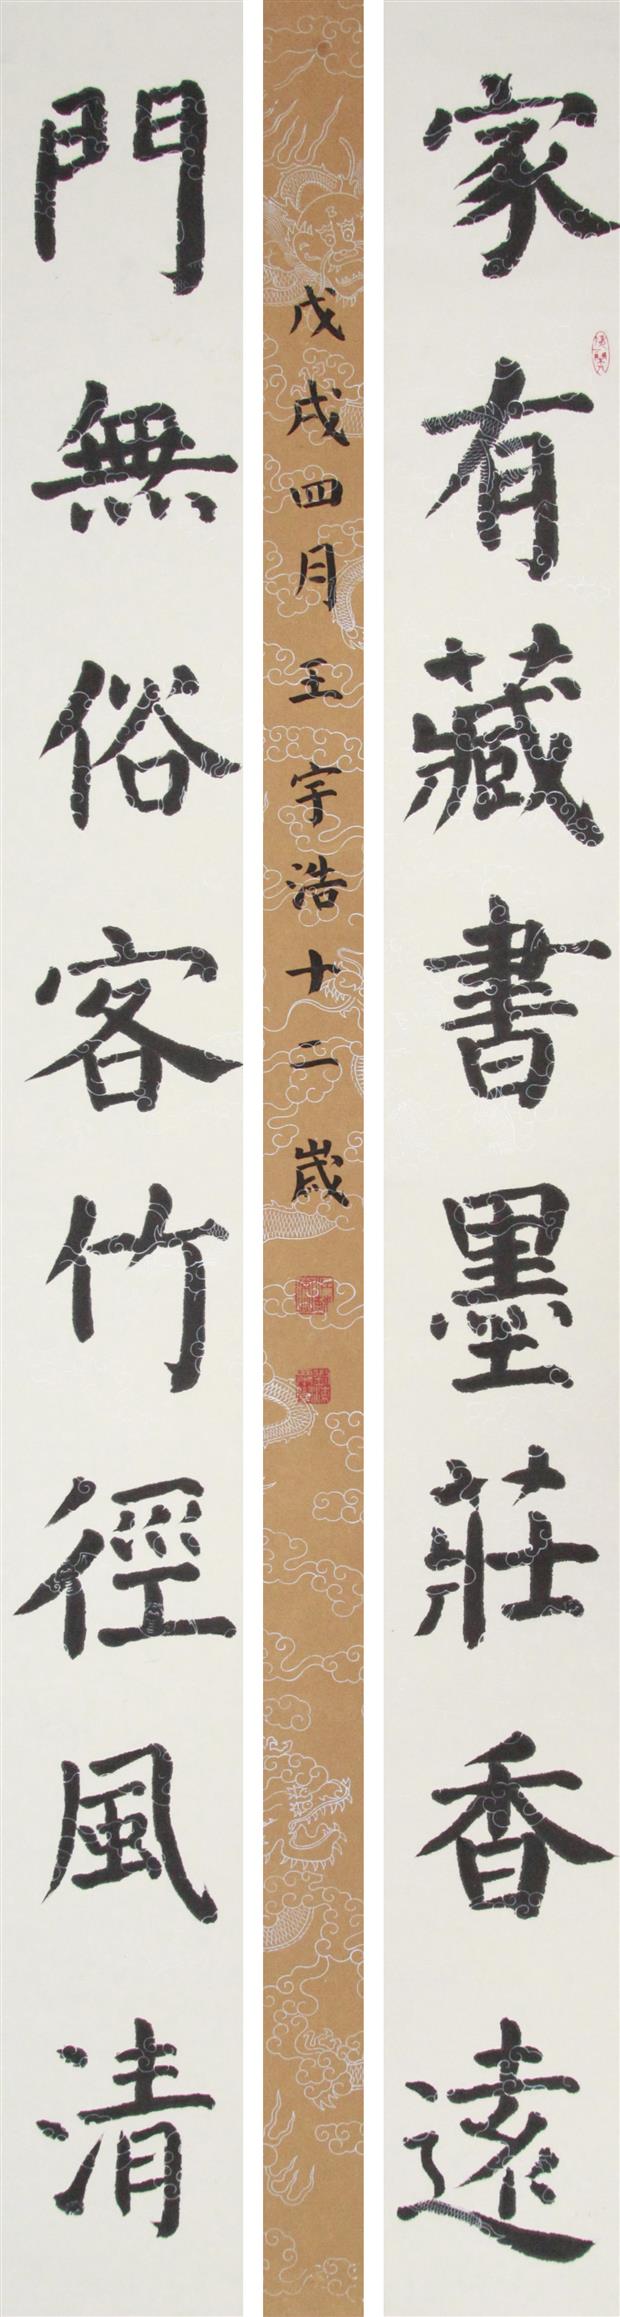 家有藏書墨莊香遠
門無俗客竹徑風清
戊戌四月王宇浩十二歲